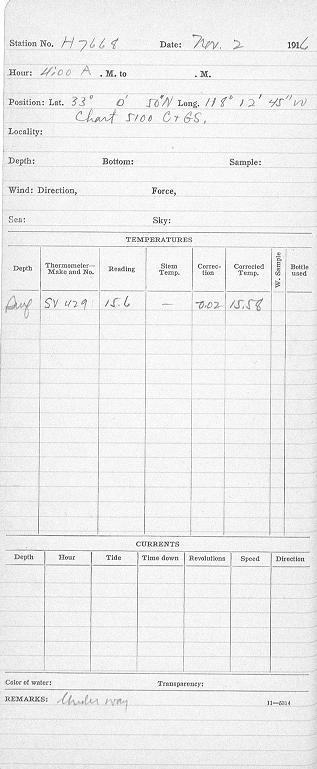 Station No. H 7668 Date: Nov. 2 1916
Hour: 4:00 A . M. to . M.
Position: Lat. 33° 0' 50" N Long. 118° 12' 45" W
Chart 5100 C & GS.
Locality:
Depth: Bottom: Sample:
Wind: Direction, Force,
Sea: Sky:
TEMPERATURES
Depth Thermometer—Make and No. Reading Stem Temp. Correction Corrected Temp. W. Sample Bottle used
Surf SV 429 15.6 — -0.02 15.58
CURRENTS
Depth Hour Tide Time down Revolutions Speed Direction
Color of water: Transparency:
REMARKS: Under way 11—6314